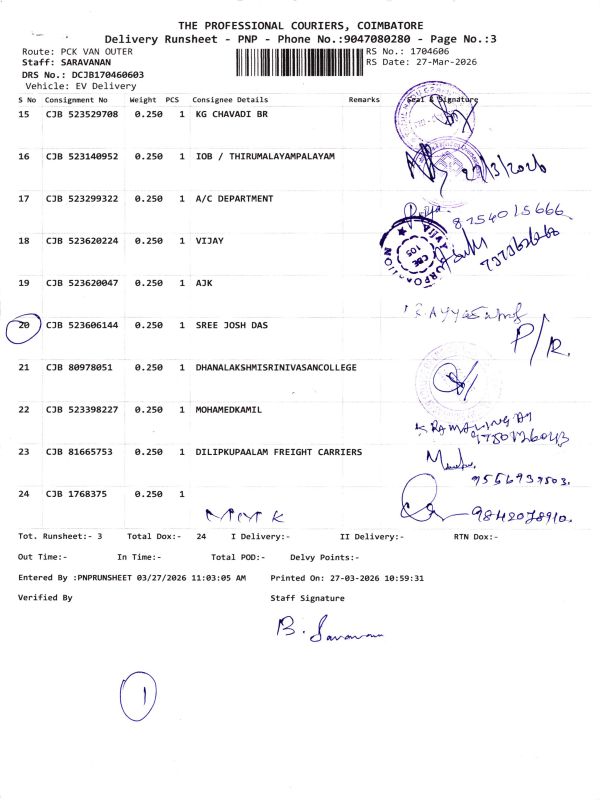 THE PROFESSIONAL COURIERS, COIMBATORE
Delivery Runsheet - PNP - Phone No.:9047080280 - Page No.:3
Route: PCK VAN OUTER
RS No.: 1704606
Staff: SARAVANAN
RS Date: 27-Mar-2026
DRS No.: DCJB170460603
Vehicle: EV Delivery
S No Consignment No Weight PCS Consignee Details Remarks Seal & Signature
15 CJB 523529708 0.250 1 KG CHAVADI BR
16 CJB 523140952 0.250 1 IOB / THIRUMALAYAMPALAYAM
27/3/2026
17 CJB 523299322 0.250 1 A/C DEPARTMENT
8754015666
18 CJB 523620224 0.250 1 VIJAY
VIJAY CORPORATION
CBE
105
19 CJB 523620047 0.250 1 AJK
20 CJB 523606144 0.250 1 SREE JOSH DAS
P/R.
21 CJB 80978051 0.250 1 DHANALAKSHMISRINIVASANCOLLEGE
22 CJB 523398227 0.250 1 MOHAMEDKAMIL
23 CJB 81665753 0.250 1 DILIPKUPAALAM FREIGHT CARRIERS
24 CJB 1768375 0.250 1
9842078910.
Tot. Runsheet:- 3 Total Dox:- 24 I Delivery:- II Delivery:- RTN Dox:-
Out Time:- In Time:- Total POD:- Delvy Points:-
Entered By :PNPRUNSHEET 03/27/2026 11:03:05 AM Printed On: 27-03-2026 10:59:31
Verified By Staff Signature
B. Saravanan
1